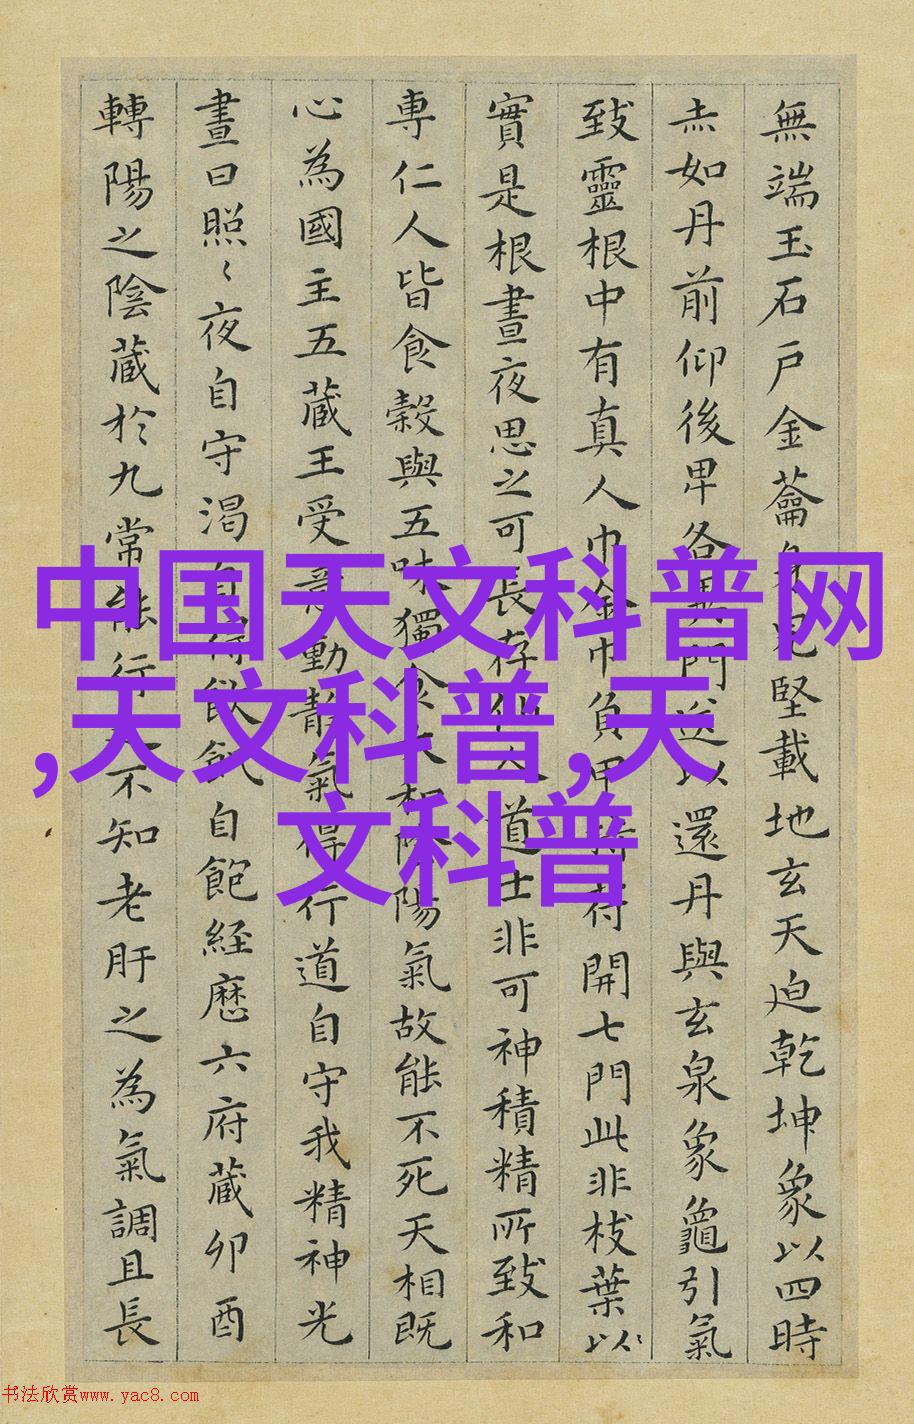 中国天文科普网
,天文科普,天
文科普
無端玉石戶金蘥身堅載地玄天迫乾坤象以四時
赤如丹前仰後卑各異門送以還丹與玄泉象龜引氣
致靈根中有真人巾金巾負甲持符開七門此非枝葉以
實是根晝夜思之可長存仙道士非可神積精所致和
專仁人皆食穀與五味獨食和陰陽氣故能不死天相既
心為國主五藏王受意動靜氣得行道自守我精神光
晝日照〻夜自守渴自得飲自飽經歷六府藏卯酉
轉陽之陰藏於九常能行不知老肝之為氣調且長
书法欣赏www.yac8.com